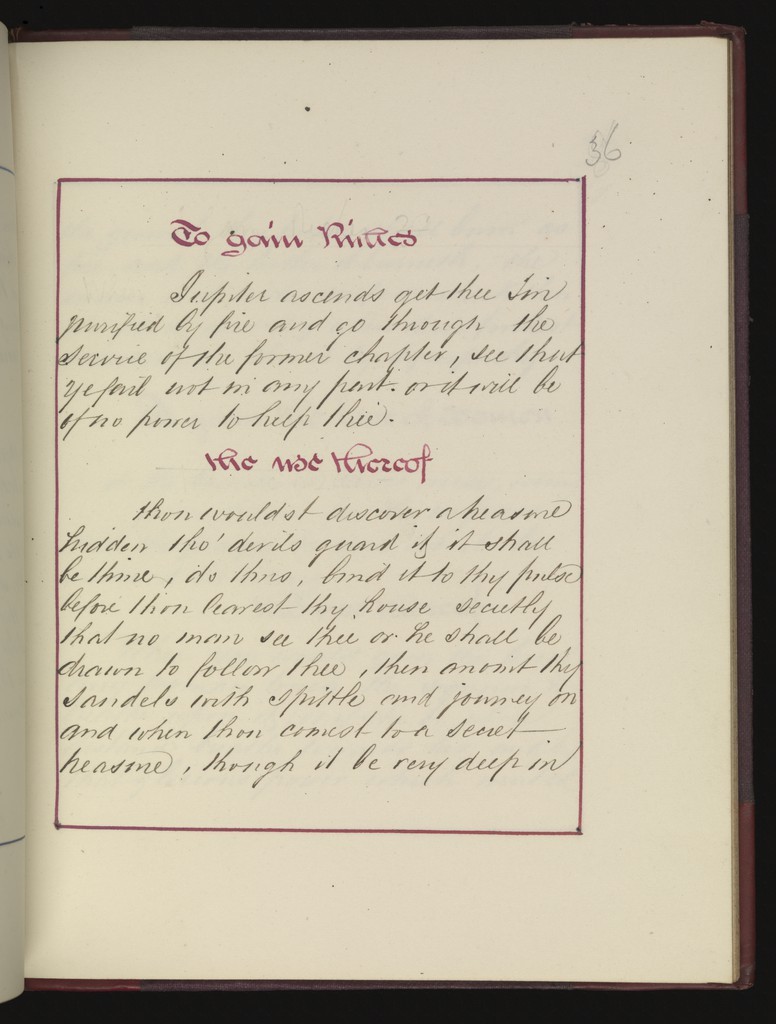 36
To gain Riches
Jupiter ascends get thee Tin
purified by fire and go through the
service of the former chapter, see that
ye fail not in any part. or it will be
of no power to help thee.
the use thereof
thou wouldst discover a treasure
hidden tho' devils guard it it shall
be thine, do thus, bind it to thy pulse
before thou leavest thy house secretly
that no man see thee or he shall be
drawn to follow thee, then anoint thy
sandels with spittle and journey on
and when thou comest to a secret
treasure, though it be very deep in